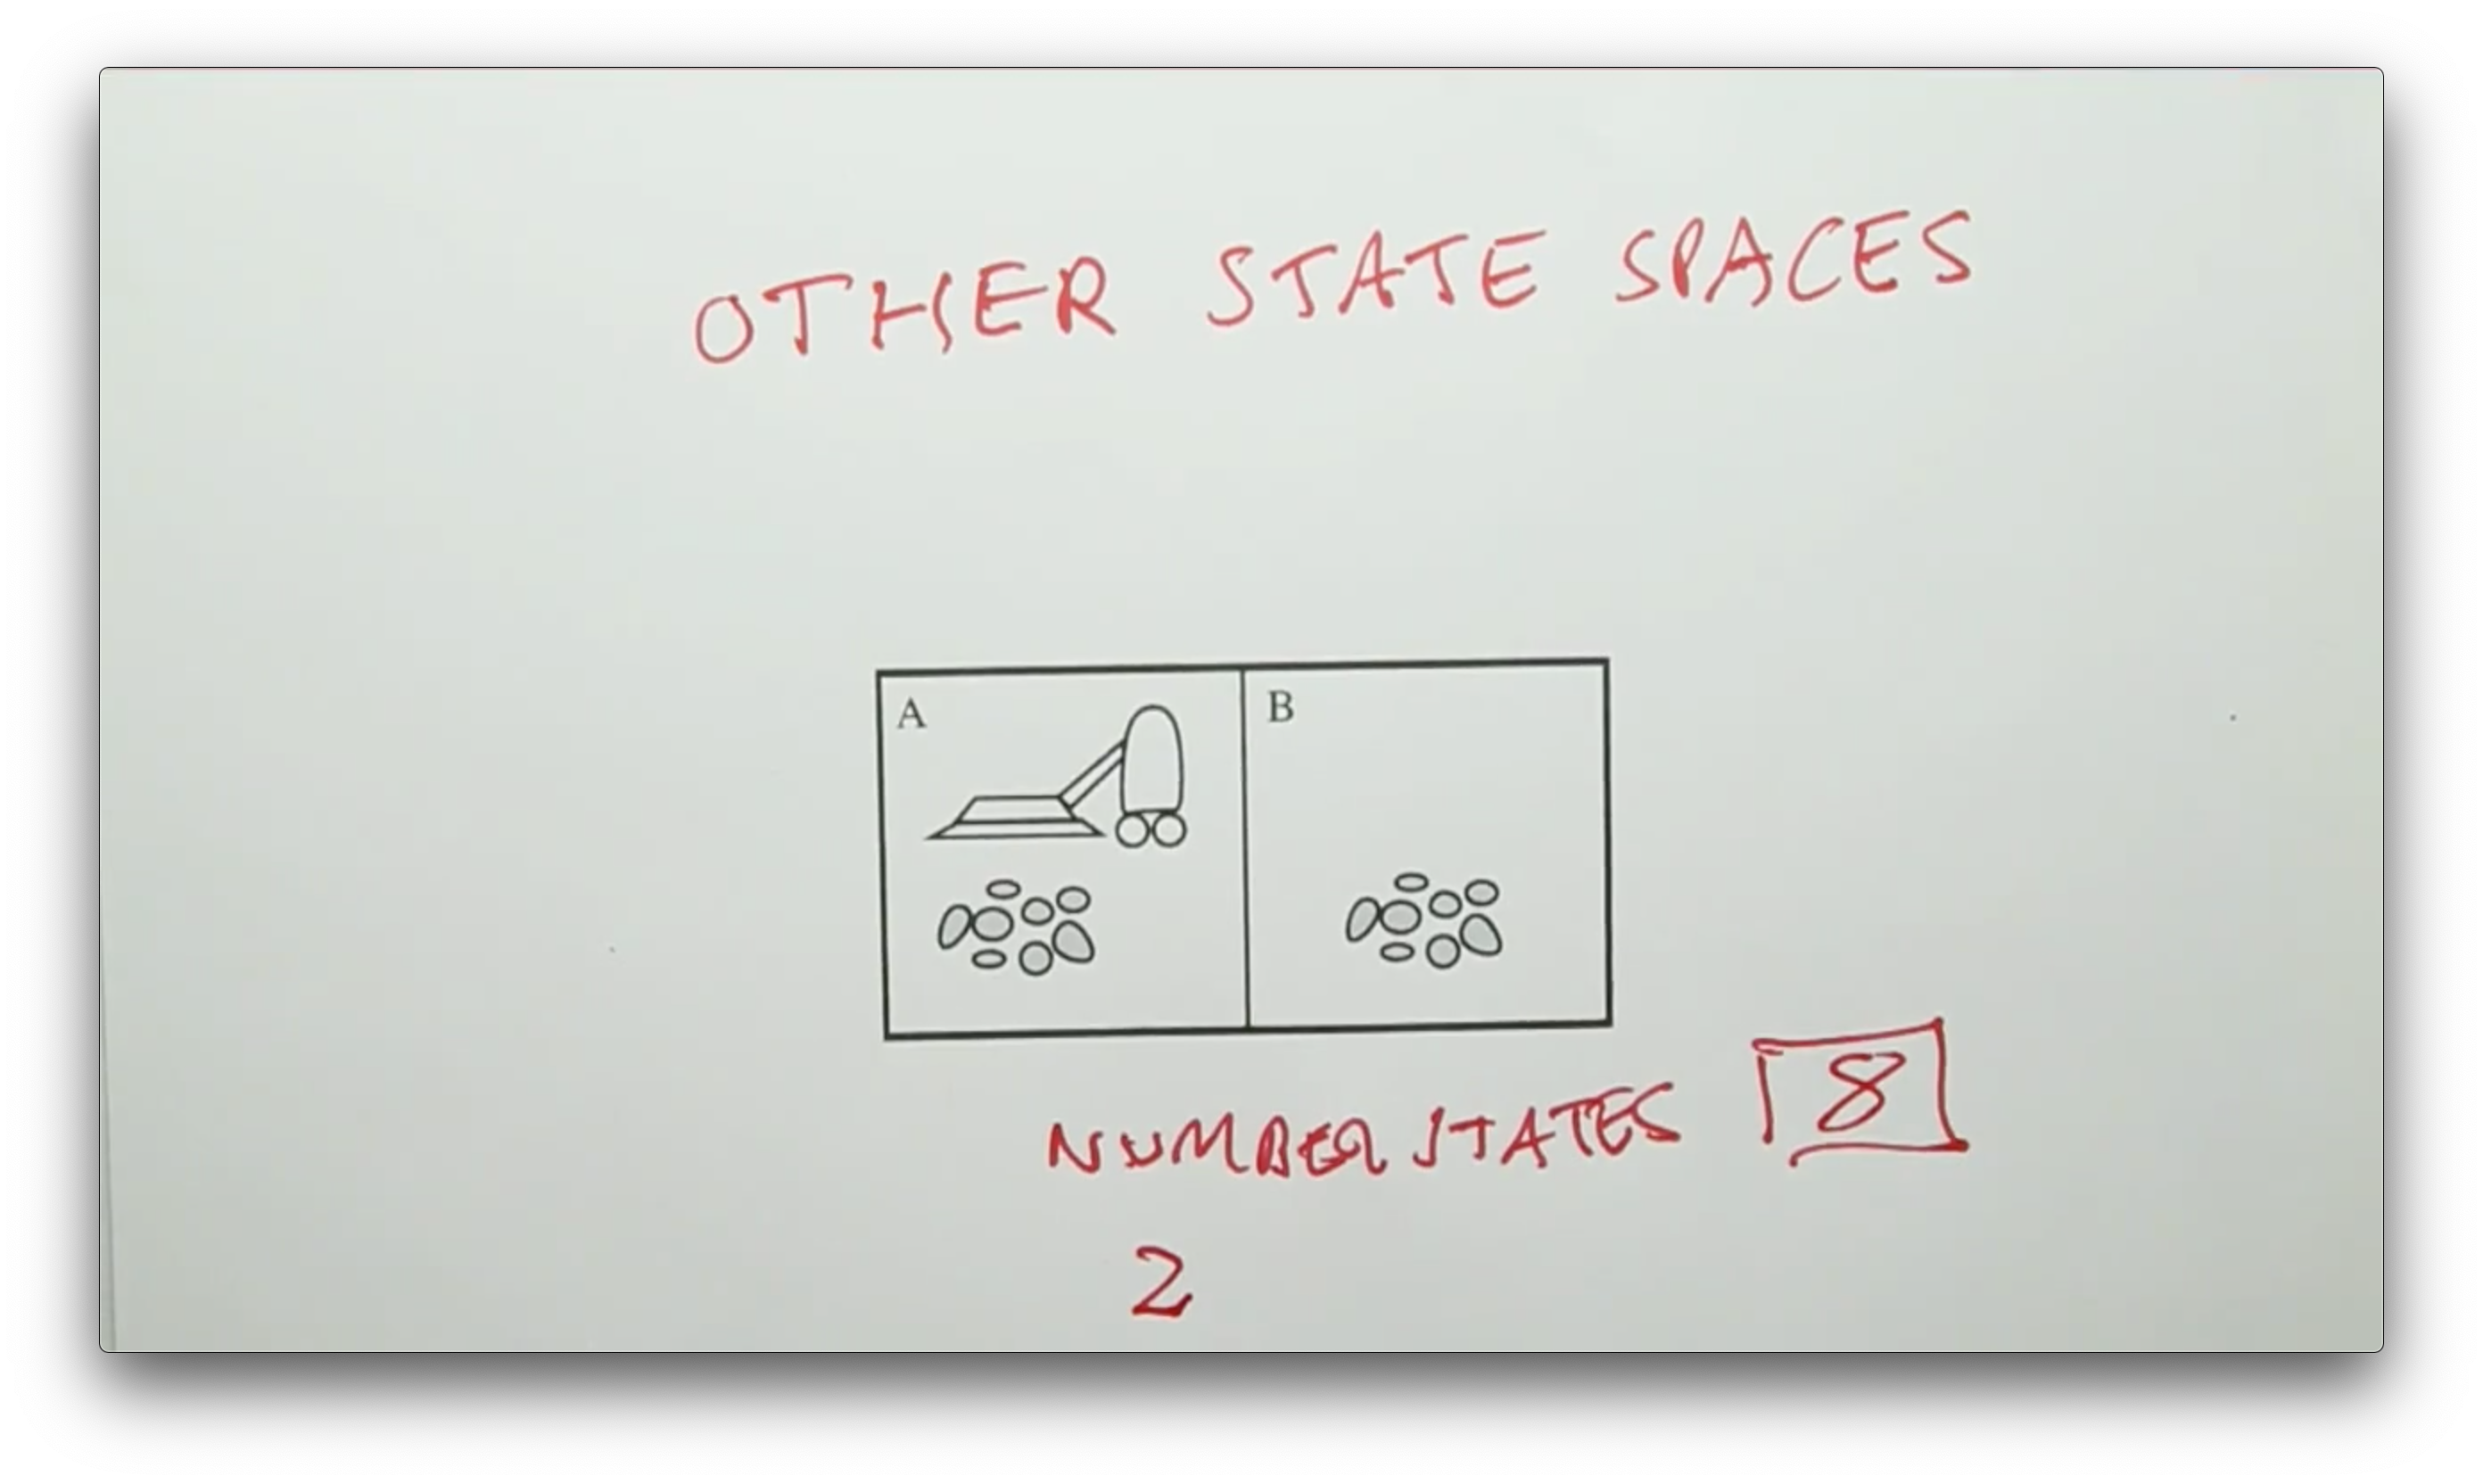 OTHER STATE SPACES
A B
NUMBER STATES 8
2